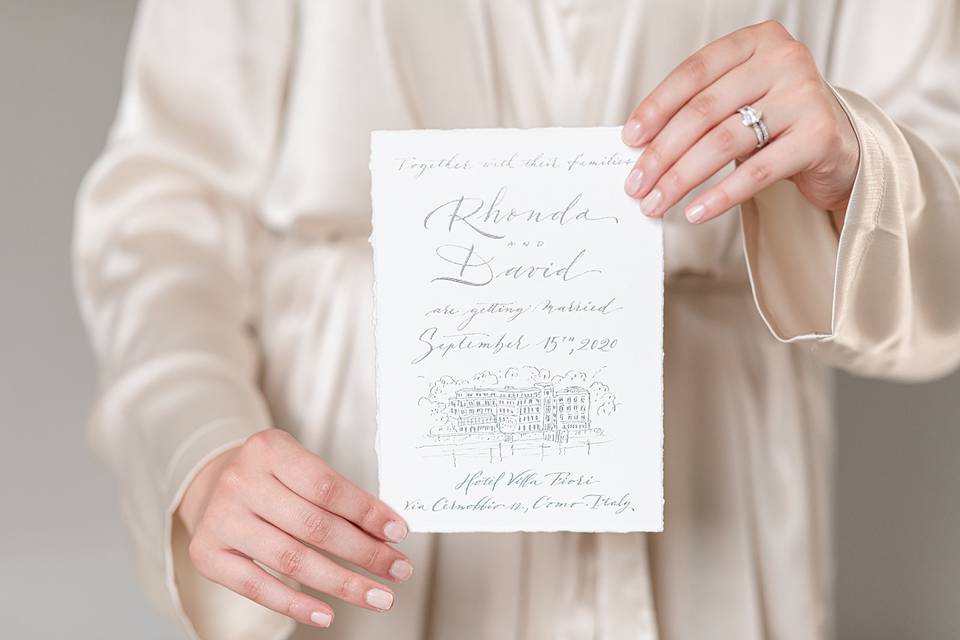 Together with their families
Rhonda
AND
David
are getting Married
September 15TH, 2020
Hotel Villa Fiori
Via Cernobbio 12, Como Italy